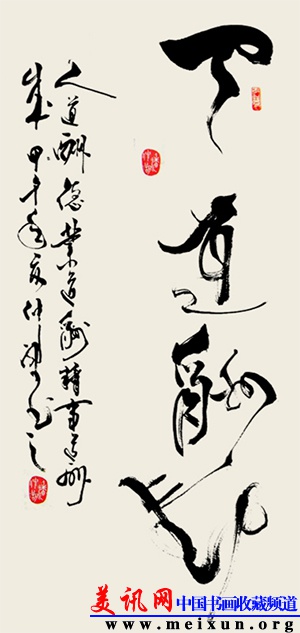 天道酬勤
人道酬德業道酬精事道酬
成甲午年夏仲书之
美讯网 中国书画收藏频道
www.meixun.org